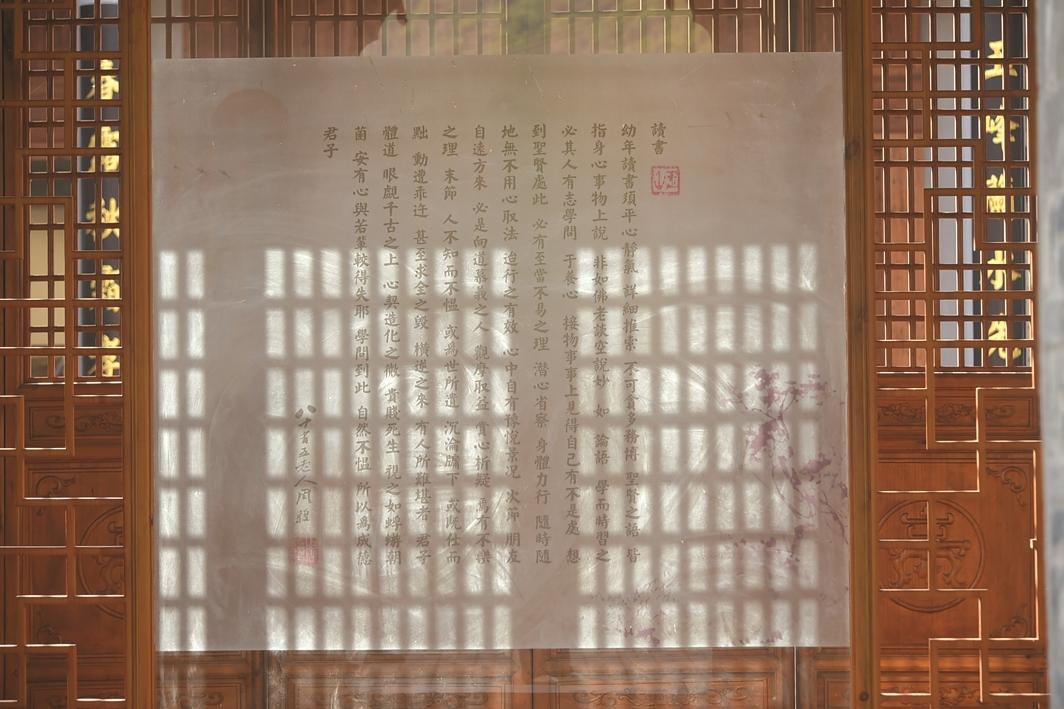 讀書
幼年讀書須平心靜氣 詳細推索 不可貪多務博 聖賢之語 皆
指身心事物上說 非如佛老談空說妙 如 論語 學而時習之
必其人有志學問 于養心 接物事事上見得自己有不是處 想
到聖賢處此 必有至當不易之理 潛心省察 身體力行 隨時隨
地無不用心取法 迨行之有效 心中自有悅景況 次節 朋友
自遠方來 必是向道慕義之人 觀摩取益 賞心析疑 焉有不樂
之理 末節 人不知而不慍 或為世所遺 沉淪牖下 或既仕而
黜 動遭乖迕 甚至求全之毀 橫逆之來 有人所難堪者 君子
體道 眼覷千古之上 心契造化之微 貴賤死生 視之如蜉蝣朝
菌 安有心與若輩較得失耶 學問到此 自然不慍 所以為成德
君子
八十五老人周